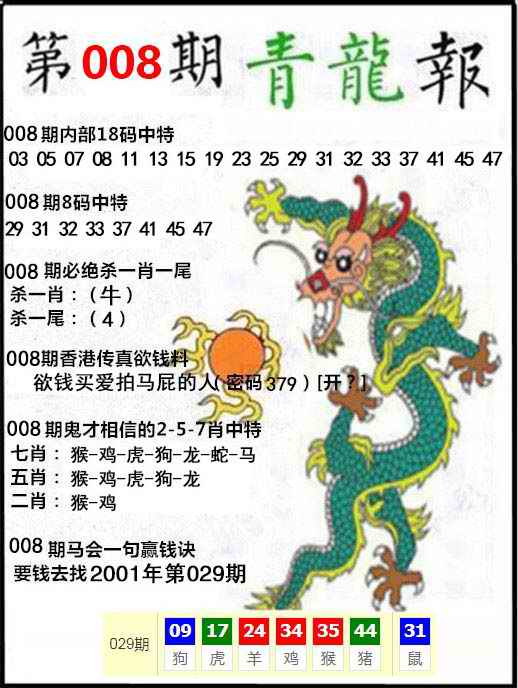 第008期青龍報
008期内部18码中特
03 05 07 08 11 13 15 19 23 25 29 31 32 33 37 41 45 47
008期8码中特
29 31 32 33 37 41 45 47
008期必绝杀一肖一尾
杀一肖：（牛）
杀一尾：（4）
008期香港传真欲钱料
欲钱买爱拍马屁的人（密码379）[开？]
008期鬼才相信的2-5-7肖中特
七肖：猴-鸡-虎-狗-龙-蛇-马
五肖：猴-鸡-虎-狗-龙
二肖：猴-鸡
008期马会一句赢钱诀
要钱去找2001年第029期
029期 09 17 24 34 35 44 31
狗 虎 羊 鸡 猴 猪 鼠